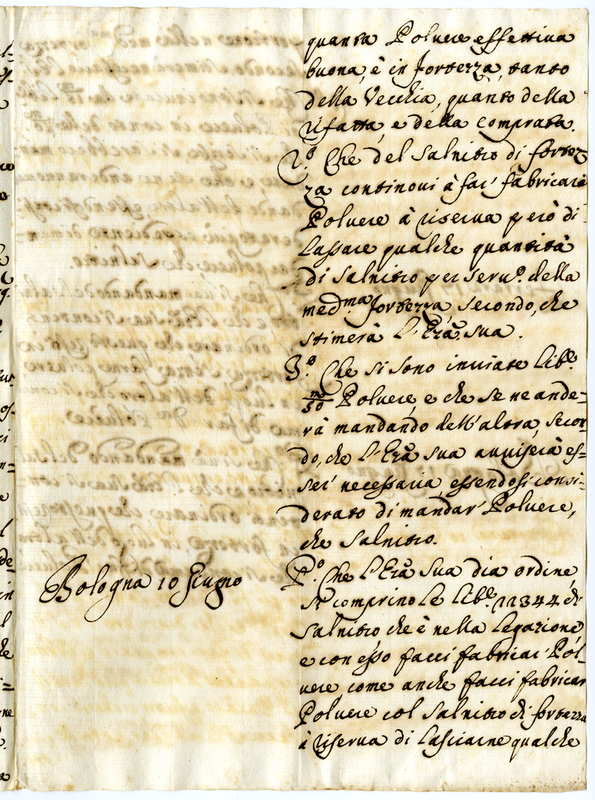 quanta Poluere effettiua
buona, è in fortezza, tanto
della Vecchia, quanto della
rifatta, e della comprata.
2.º Che del salnitro di fortez
za continoui à far' fabricare
Poluere à riserua però di
Lassare qualche quantità
di salnitro per seru.º della
med.ma fortezza, secondo, che
stimerà l'Em.a sua.
3.º Che si sono inuiate lib.e
m/50 Poluere, e che se ne ande=
rà mandando dell'altra, secon
do, che l'Em.a sua auuiserà es=
ser' necessaria essendosi consi=
derato di mandar' Poluere,
che salnitro.
Bologna 10 Giugno
P.º Che l'Em.a sua dia ordine
si comprino le lib.e 12344 di
salnitro che è nella Legazione
e con esso facci fabricar Pol=
uere come anche facci fabricar
Poluere col salnitro di fortezza
à riserua di Lasciarne qualche